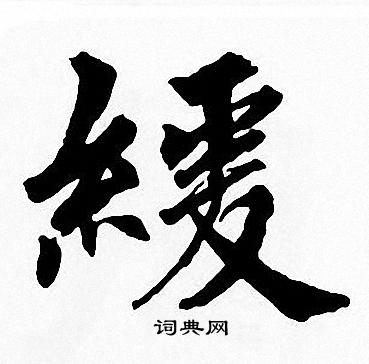 緩
词典网